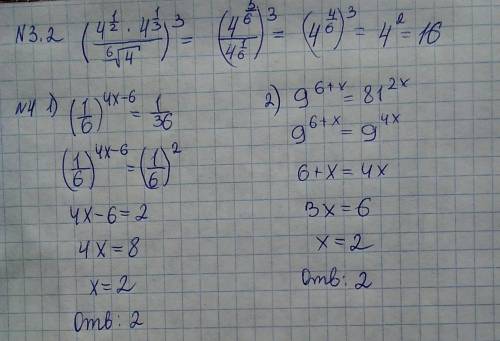 N3.2 (4^(1/2) · 4^(1/3) / ⁶√4)^3 = (4^(5/6) / 4^(1/6))^3 = (4^(4/6))^3 = 4^2 = 16
N4 1) (1/6)^(4x-6) = 1/36
(1/6)^(4x-6) = (1/6)^2
4x-6=2
4x=8
x=2
Отв: 2
2) 9^(6+x) = 81^(2x)
9^(6+x) = 9^(4x)
6+x=4x
3x=6
x=2
Отв: 2